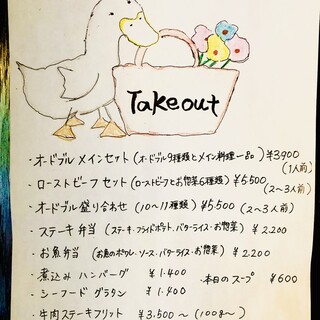 Takeout
・オードブルメインセット(オードブル9種類とメイン料理一品)¥3900
(1人前)
・ローストビーフセット(ローストビーフとお惣菜6種類)¥5,500(2〜3人前)
・オードブル盛り合わせ(10〜11種類)¥5,500(2〜3人前)
・ステーキ弁当(ステーキ・フライドポテト、バターライス・お惣菜)¥2,200
・お魚弁当(お魚のポワレ・ソース・バターライス・お惣菜)¥2,200
・煮込みハンバーグ ¥1,400 ・本日のスープ ¥600
・シーフードグラタン ¥1,400
・牛肉ステーキフリット ¥3,500〜(100g〜)